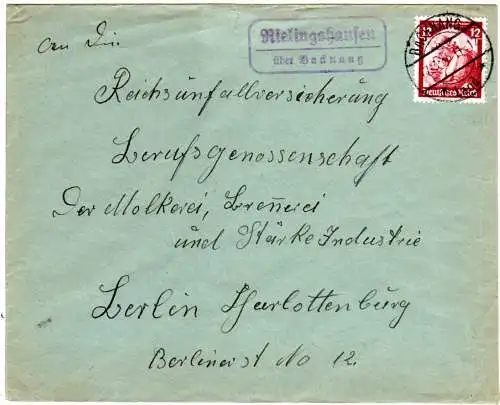 Rielingshausen
über Backnang
BACKNANG
12 12
Deutsches Reich
An Die
Reichsunfallversicherung
Berufsgenossenschaft
Der Molkerei, Brennerei
und Stärke Industrie
Berlin Charlottenburg
Berlinerst No 12.